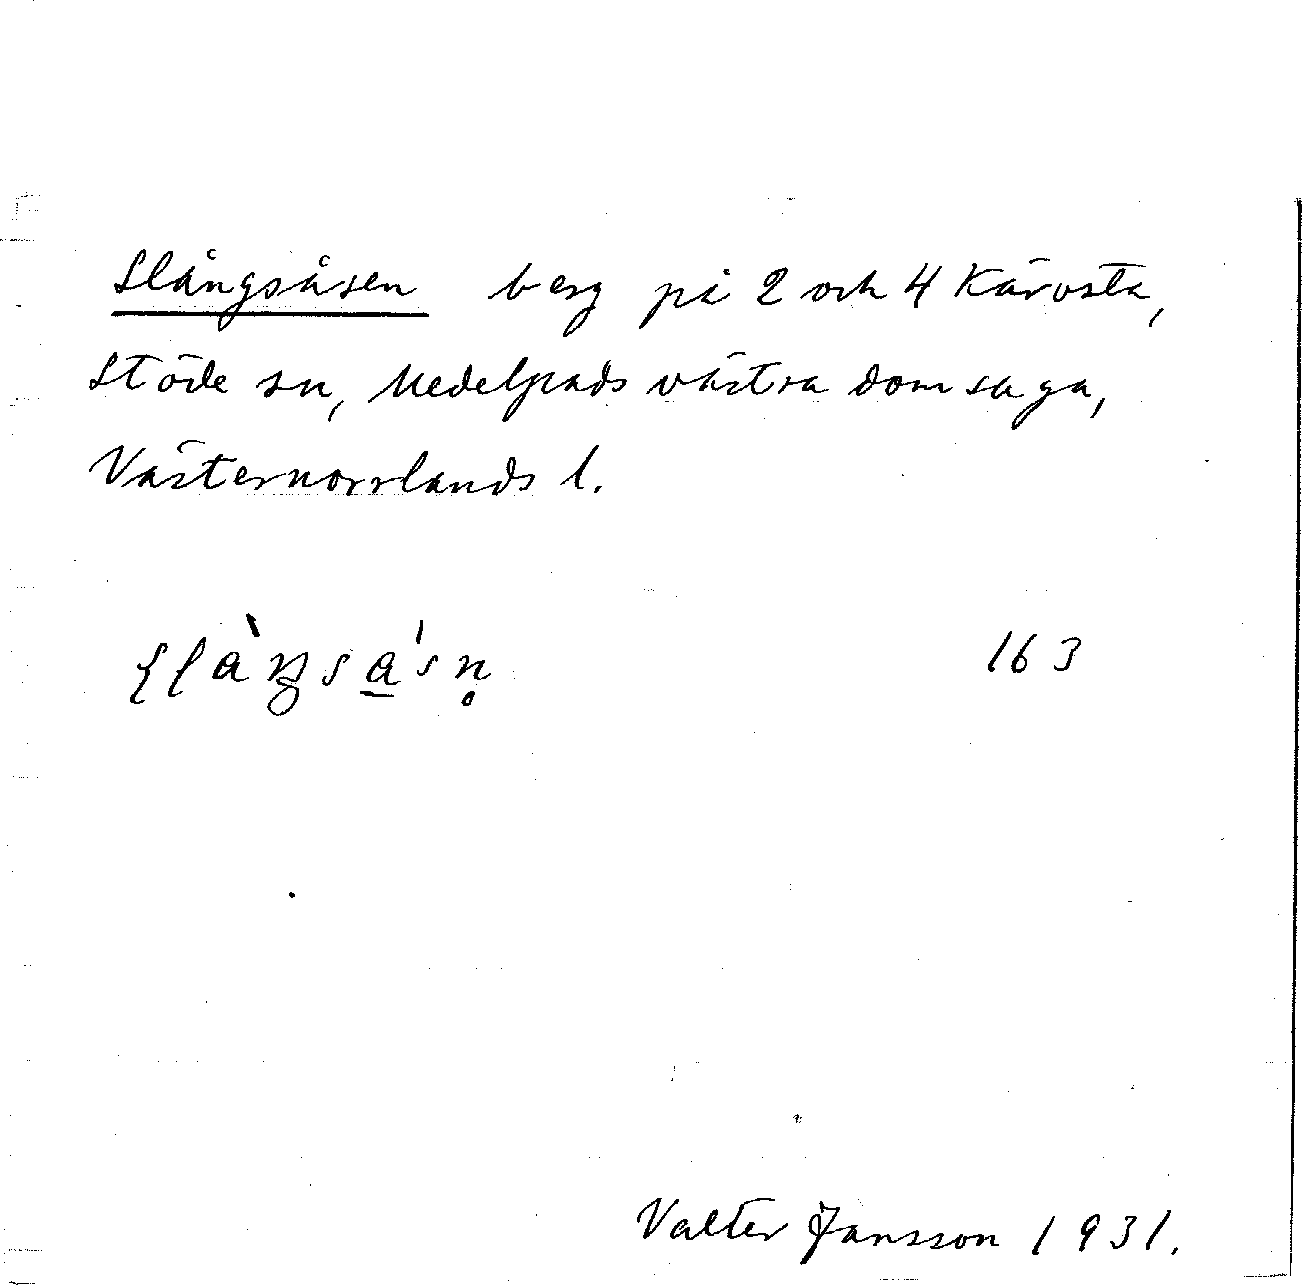 Slångsåsen berg på 2 och 4 Kärvsta,
Stöde sn, Medelpads västra domsaga,
Västernorrlands l.
163
Valter Jansson 1931.